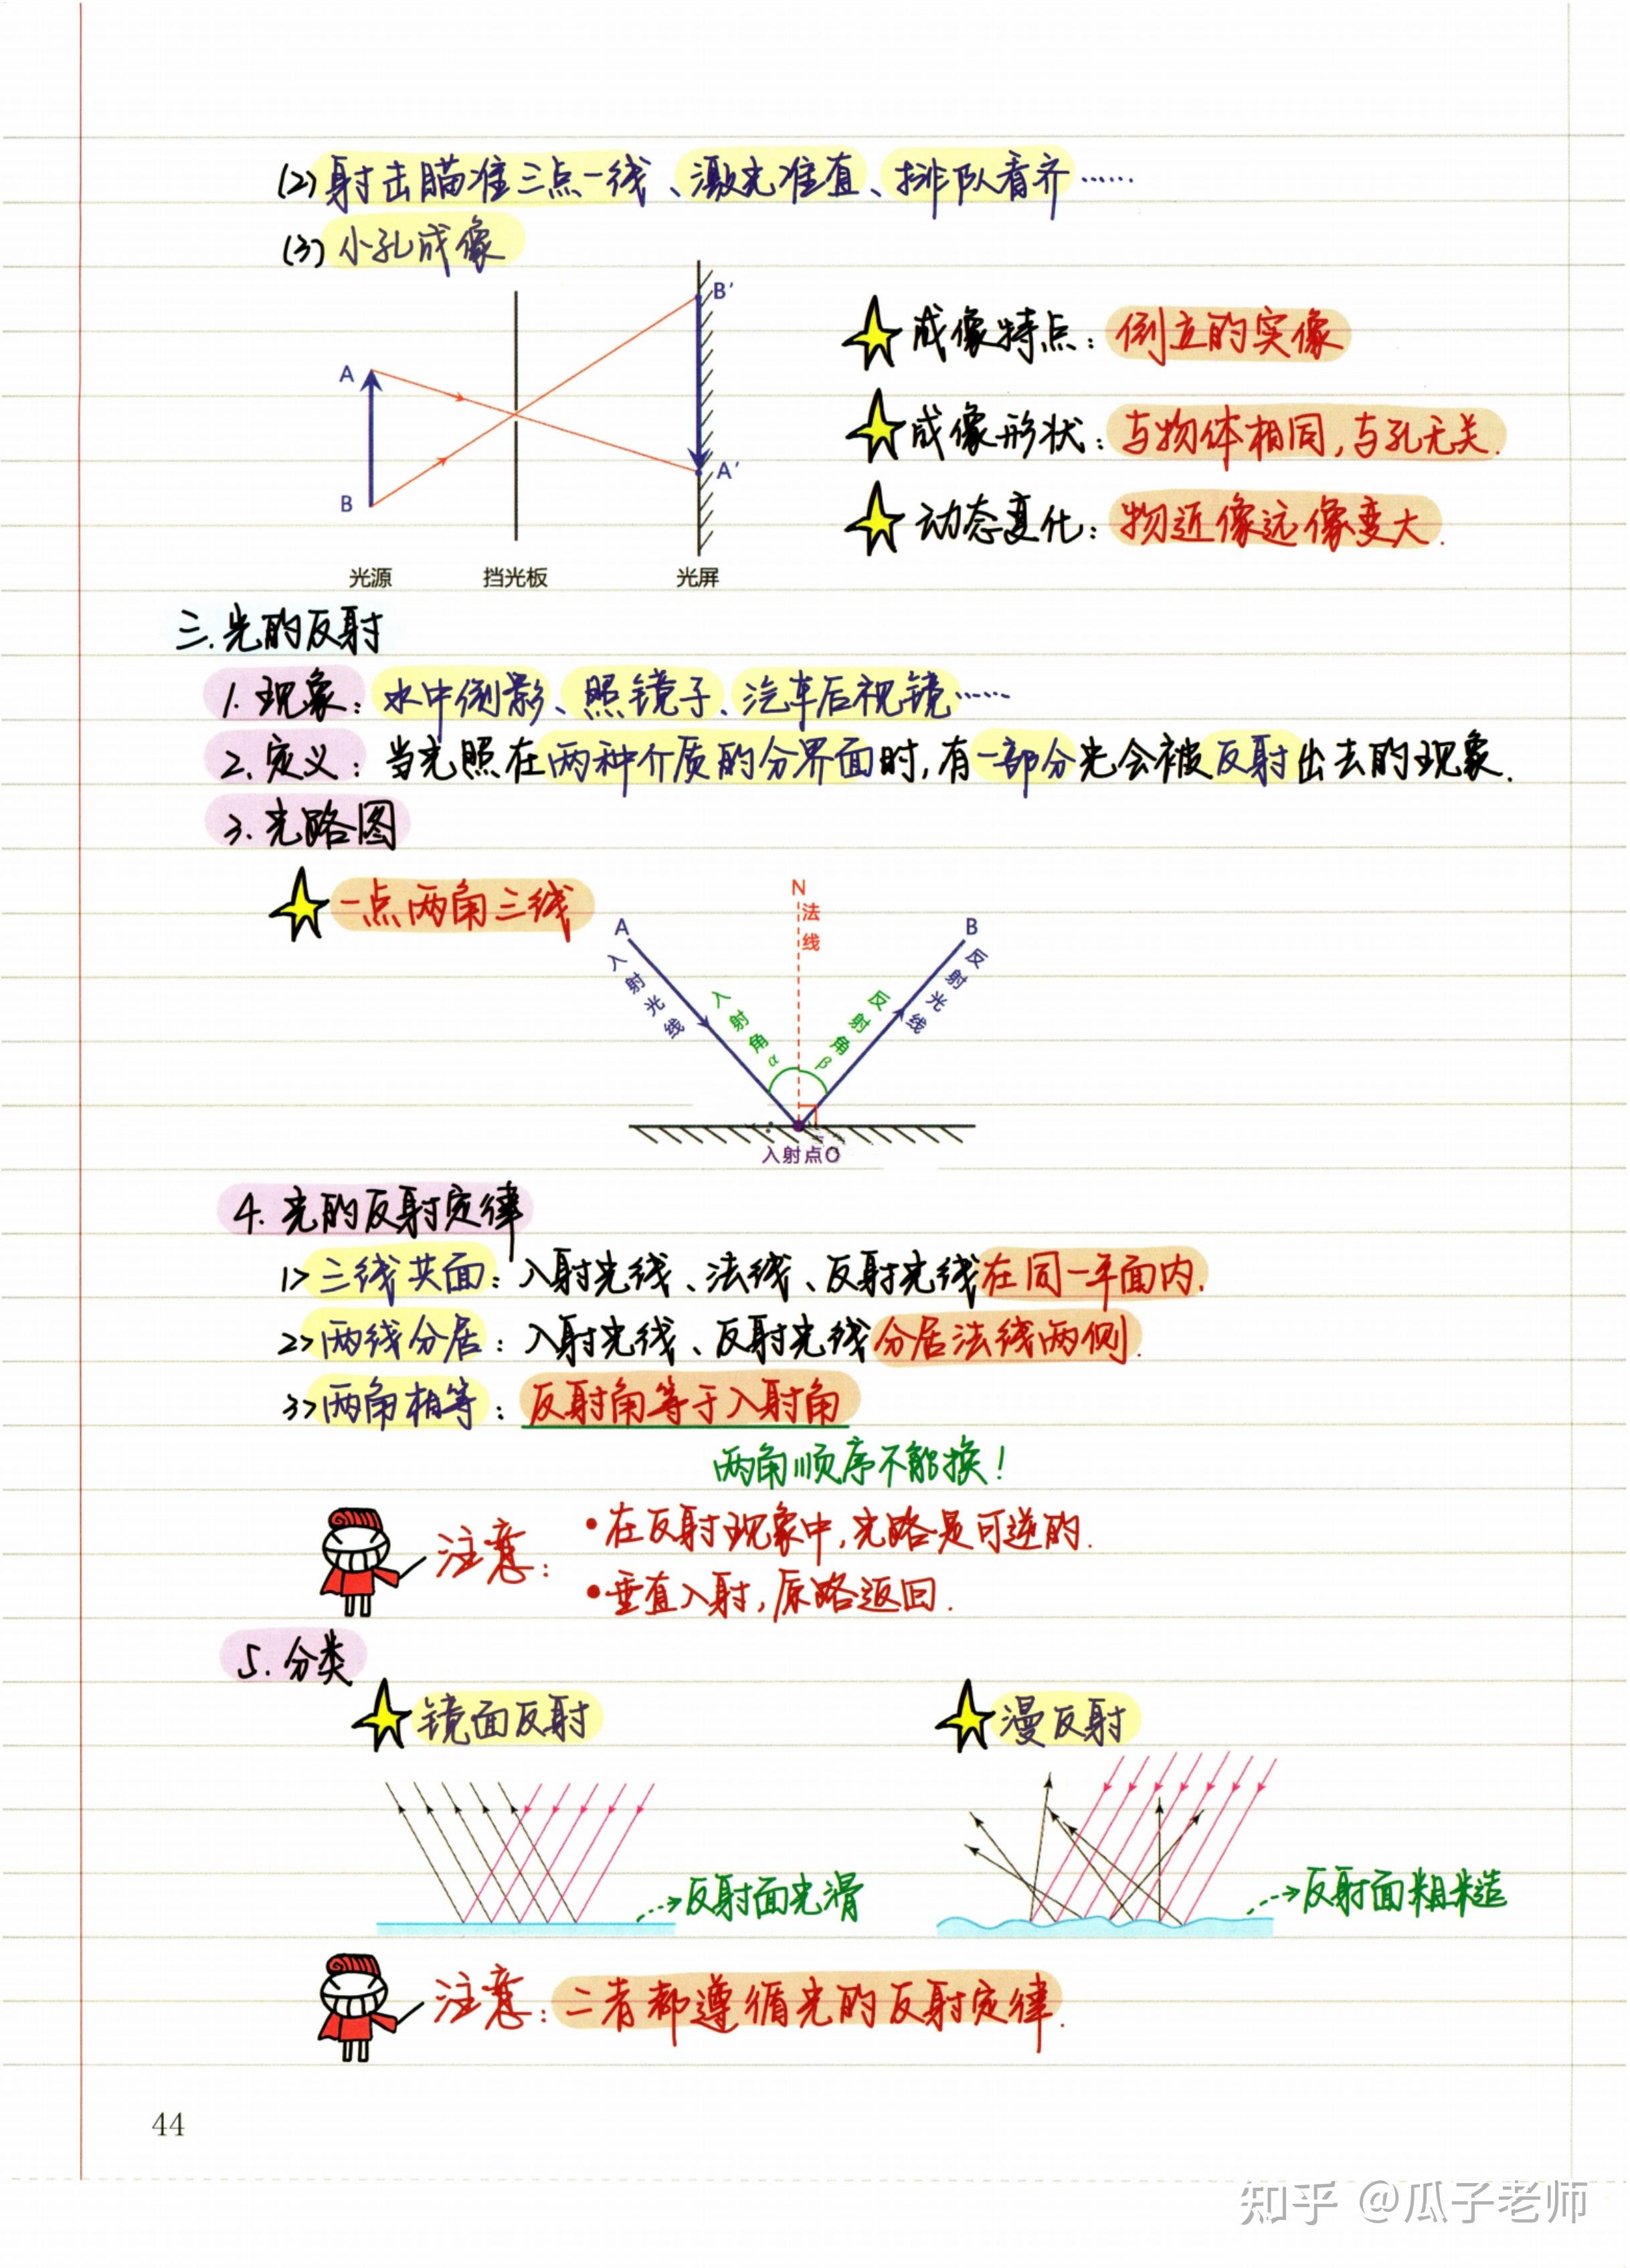 (2) 射击瞄准三点一线、激光准直、排队看齐……
(3) 小孔成像
B'
A
A'
B
光源 挡光板 光屏
成像特点：倒立的实像
成像形状：与物体相同，与孔无关.
动态变化：物近像远像变大.
三.光的反射
1.现象：水中倒影、照镜子、汽车后视镜……
2.定义：当光照在两种介质的分界面时，有一部分光会被反射出去的现象.
3.光路图
一点两角三线
N
法线
A
B
入射光线
入射角α
反射角β
反射光线
入射点O
4.光的反射定律
1>三线共面：入射光线、法线、反射光线在同一平面内.
2>两线分居：入射光线、反射光线分居法线两侧.
3>两角相等：反射角等于入射角
两角顺序不能换！
注意：
•在反射现象中，光路是可逆的.
•垂直入射，原路返回.
5.分类
镜面反射 漫反射
反射面光滑 反射面粗糙
注意：二者都遵循光的反射定律.
44
知乎 @瓜子老师